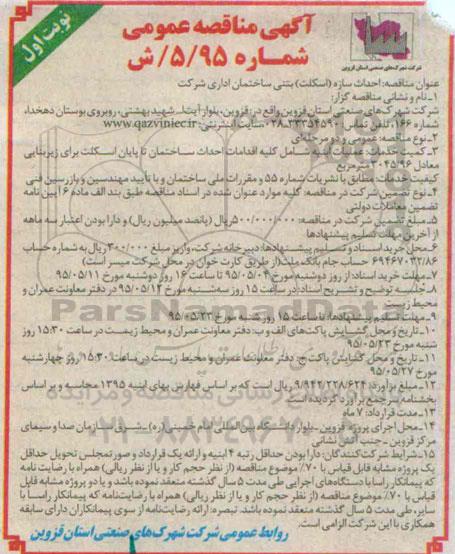 نوبت اول
آگهی مناقصه عمومی
شماره ۵/۹۵/ش
شرکت شهرک‌های صنعتی استان قزوین
عنوان مناقصه: احداث سازه (اسکلت) بتنی ساختمان اداری شرکت
۱-نام و نشانی مناقصه گزار:
شرکت شهرک‌های صنعتی استان قزوین واقع در: قزوین، بلوار آیت‌ا... شهید بهشتی، روبروی بوستان دهخدا،
شماره ۱۶۶، تلفن تماس ۳۳۳۵۴۵۹۰-۰۲۸ سایت اینترنتی: www.qazviniec.ir
۲-نوع مناقصه: عمومی و دو مرحله‌ای
۳-کمیت خدمات: عملیات پایه شامل کلیه اقدامات احداث ساختمان تا پایان اسکلت برای زیربنایی
معادل ۳۰۴۵/۹۶ مترمربع
کیفیت خدمات: مطابق با نشریات شماره ۵۵ و مقررات ملی ساختمان و با تایید مهندسین و بازرسین فنی
۴-نوع تضمین شرکت در مناقصه: کلیه موارد عنوان شده در اسناد مناقصه طبق بند الف ماده ۶ آیین نامه
تضمین معاملات دولتی
۵-مبلغ تضمین شرکت در مناقصه: ۵۰۰/۰۰۰/۰۰۰ ریال (پانصد میلیون ریال) و دارا بودن اعتبار سه ماهه
از آخرین مهلت تسلیم پیشنهادها
۶-محل خرید اسناد و تسلیم پیشنهادها: دبیرخانه شرکت، واریز مبلغ ۳۰۰/۰۰۰ ریال به شماره حساب
۶۹۴۶۷۰۳۲/۸۶ حساب جام بانک ملت (از طریق کارت خوان در محل شرکت میسر است)
۷-مهلت خرید اسناد: از روز دوشنبه مورخ ۹۵/۰۵/۰۴ تا ساعت ۱۶ روز دوشنبه مورخ ۹۵/۰۵/۱۱
۸-جلسه توضیح و تشریح اسناد: در ساعت ۱۵ روز سه‌شنبه مورخ ۹۵/۰۵/۱۲ در دفتر معاونت عمران و
محیط زیست
۹-مهلت تسلیم پیشنهادها: تا ساعت ۱۵ روز شنبه مورخ ۹۵/۰۵/۲۳
۱۰-تاریخ و محل گشایش پاکت‌های الف و ب: دفتر معاونت عمران و محیط زیست در ساعت ۱۵:۳۰ روز
شنبه مورخ ۹۵/۰۵/۲۳
۱۱-تاریخ و محل گشایش پاکت ج: دفتر معاونت عمران و محیط زیست در ساعت ۱۵:۳۰ روز چهارشنبه
مورخ ۹۵/۰۵/۲۷
۱۲-مبلغ برآورد: ۹/۹۴۲/۲۲۸/۶۲۴ ریال است که بر اساس فهارس بهای ابنیه ۱۳۹۵ محاسبه و بر اساس
بخشنامه سرجمع برآورد گردیده است
۱۳-مدت قرارداد: ۷ ماه
۱۴-محل اجرای پروژه: قزوین - بلوار دانشگاه بین‌المللی امام خمینی (ره) - شرق سازمان صدا و سیمای
مرکز قزوین - جنب آتش نشانی
۱۵-شرایط شرکت‌کنندگان: دارا بودن حداقل رتبه ۴ ابنیه و ارائه یک قرارداد و صورتمجلس تحویل حداقل
یک پروژه مشابه قابل قیاس با ۷۰٪ موضوع مناقصه (از نظر حجم کار و یا از نظر ریالی) همراه با رضایت نامه
که پیمانکار راسا با دستگاه‌های اجرایی طی مدت ۵ سال گذشته منعقد نموده باشد و یا دو پروژه مشابه قابل
قیاس با ۷۰٪ موضوع مناقصه (از نظر حجم کار و یا از نظر ریالی) همراه با رضایت‌نامه که پیمانکار راسا با
سایر، طی مدت ۵ سال گذشته منعقد نموده باشد. تبصره: ارائه رضایت‌نامه از سوی پیمانکاران دارای سابقه
همکاری با این شرکت الزامی است.
روابط عمومی شرکت شهرک‌های صنعتی استان قزوین
ParsNamadData
۰۲۱-۸۸۳۴۹۶۷۰